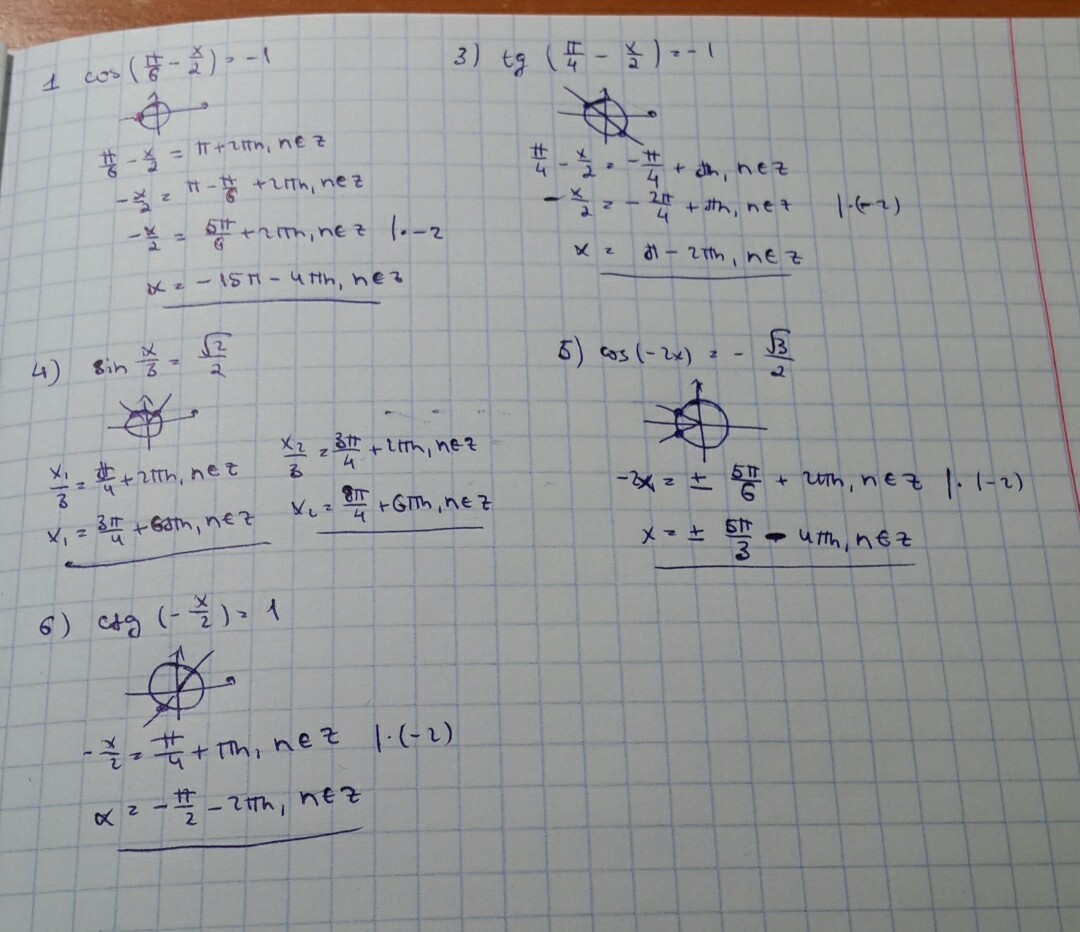 1 cos(π/6 - x/2) = -1
π/6 - x/2 = π + 2πn, n∈z
-x/2 = π - π/6 + 2πn, n∈z
-x/2 = 5π/6 + 2πn, n∈z |· -2
x = -15π - 4πn, n∈z
3) tg (π/4 - x/2) = -1
π/4 - x/2 = -π/4 + πn, n∈z
-x/2 = -2π/4 + πn, n∈z |·(-2)
x = π - 2πn, n∈z
4) sin x/3 = √2/2
x₁/3 = π/4 + 2πn, n∈z
x₁ = 3π/4 + 6πn, n∈z
x₂/3 = 3π/4 + 2πn, n∈z
x₂ = 9π/4 + 6πn, n∈z
5) cos(-2x) = -√3/2
-2x = ± 5π/6 + 2πn, n∈z |·(-2)
x = ± 5π/3 - 4πn, n∈z
6) ctg (-x/2) = 1
-x/2 = π/4 + πn, n∈z |·(-2)
x = -π/2 - 2πn, n∈z